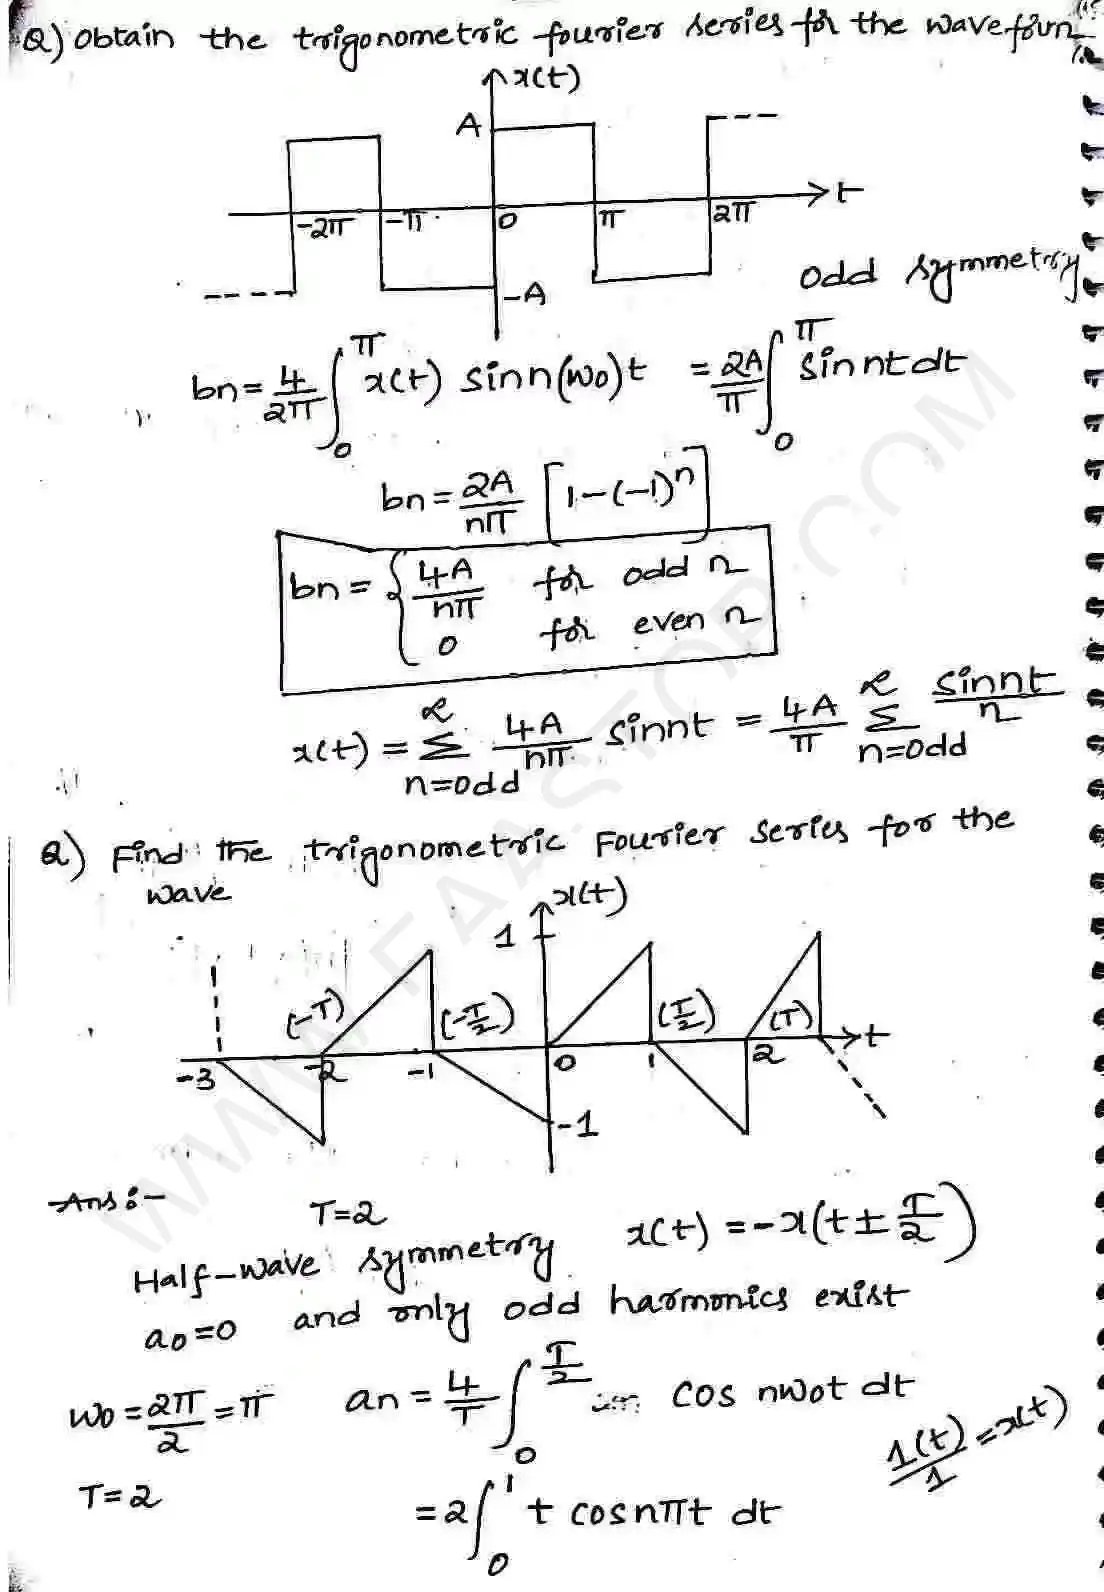 Q) Obtain the trigonometric fourier series for the wave form
x(t)
A
t
-2π -π 0 π 2π
-A
odd symmetry
bn = 4/2π ∫₀^π x(t) sin n(ω0)t = 2A/π ∫₀^π sin nt dt
bn = 2A/nπ [1-(-1)^n]
bn = { 4A/nπ for odd n
0 for even n
x(t) = Σ_{n=odd}^{∝} 4A/nπ sin nt = 4A/π Σ_{n=odd}^{∝} sin nt/n
Q) Find the trigonometric Fourier series for the
wave
x(t)
1
(-T) (-T/2) (T/2) (T)
t
-3 -2 -1 0 1 2
-1
Ans:-
T=2
Half-wave symmetry x(t) = -x(t ± T/2)
a0=0 and only odd harmonics exist
ω0 = 2π/2 = π an = 4/T ∫₀^{T/2} cos nω0t dt
1(t)/1 = x(t)
T=2
= 2 ∫₀^1 t cos nπt dt
WWW.FAASTOP.COM